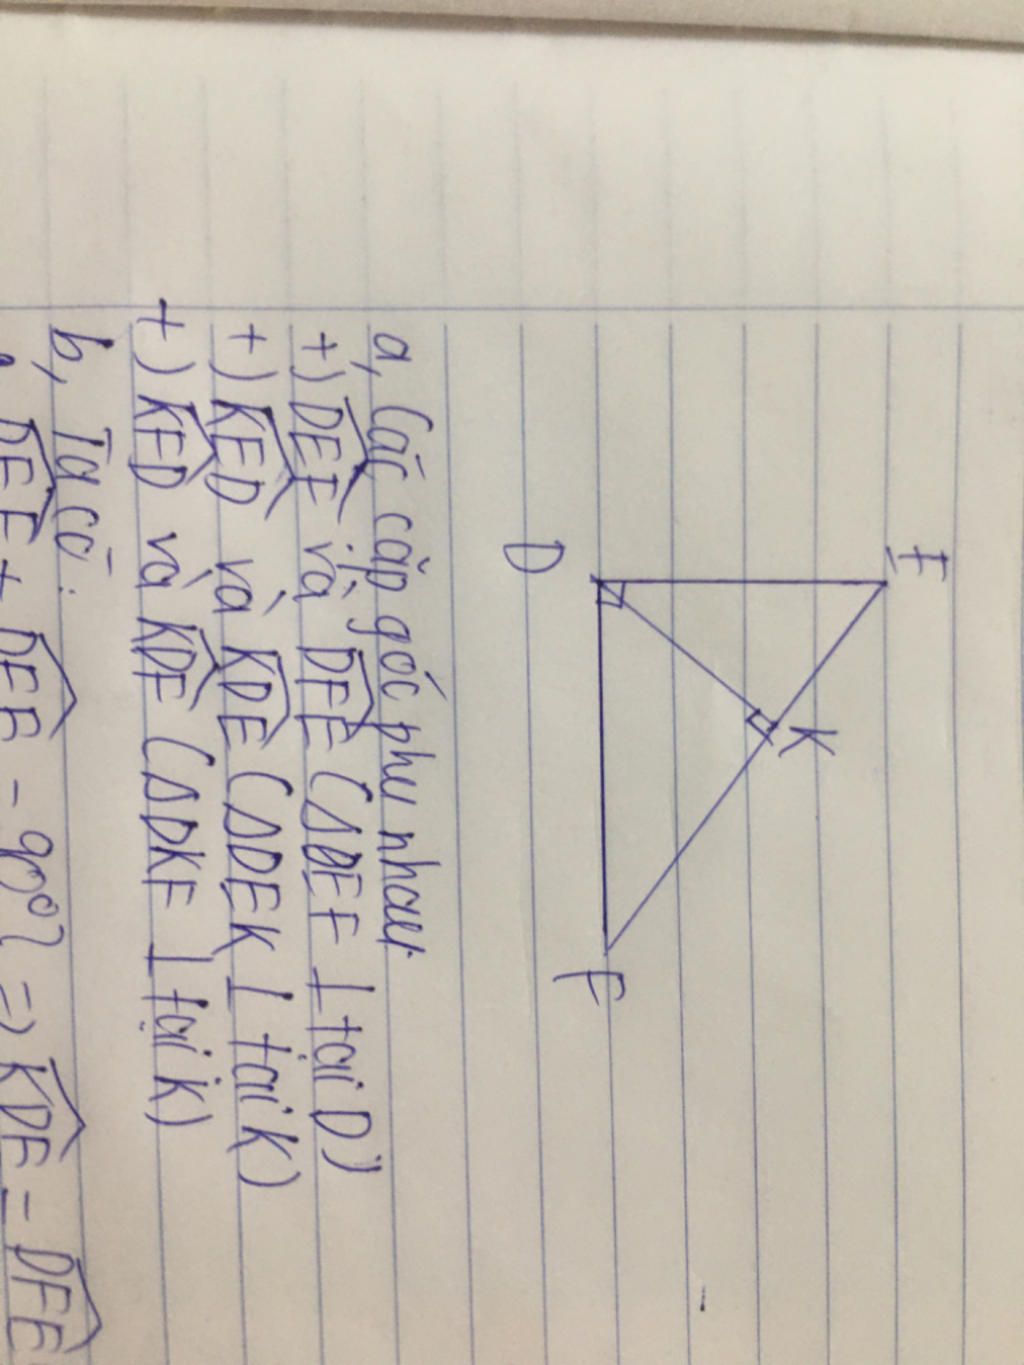 E
K
D
F
a, Các cặp góc phụ nhau
+) DEF và DFE (ΔDEF ⊥ tại D)
+) KED và KDE (ΔDEK ⊥ tại K)
+) KFD và KDF (ΔDKF ⊥ tại K)
b, Ta có:
DEF + DFE = 90° => KDE = DFE